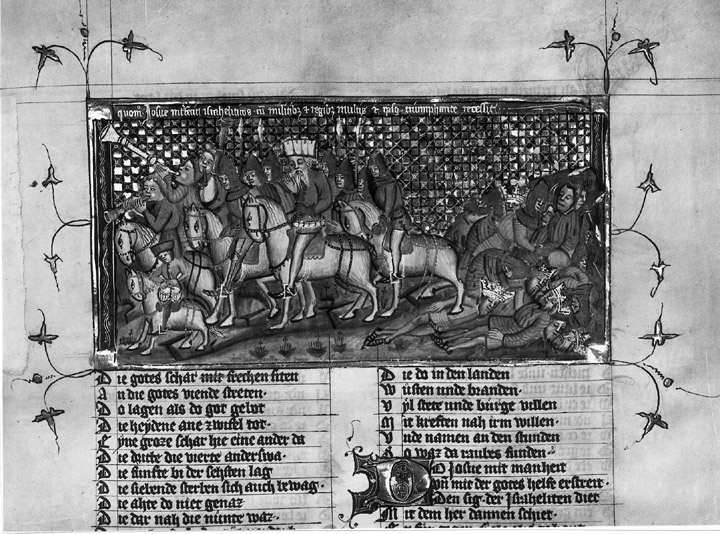 quom̄ Josue interfecit israhelitios cū militibȝ & regibȝ multis & ipso triumphante recessit
Die gotes schar mit frechen siten
An die gotes viende streten·
Do lagen als do got gelobt
Die heydene ane zwifel tot·
Eyne groze schar hie eine ander da
Die dritte die vierte anderswa·
Die funfte bi der sehsten lag
Die siebende sterben sich auch bewag·
Die ahte do niet genaz
Die dar nah die niunte waz·
Die do in den landen
Wusten unde branden·
Vyl stete unde burge villen
Mit kreften nah irm willen·
Vnde namen an den stunden
waz da raubes funden·
DO Josue mit manheit
mit der gotes helfe erstreit·
Den sig· der Israheliten diet
Mit dem her dannen schiet·